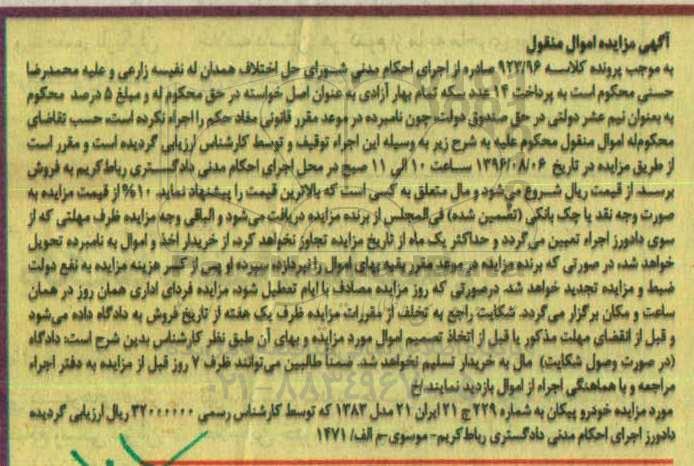 آگهی مزایده اموال منقول
به موجب پرونده کلاسه ۹۲۳/۹۶ صادره از اجرای احکام مدنی شورای حل اختلاف همدان له نفیسه زارعی و علیه محمدرضا
حسنی محکوم است به پرداخت ۱۴ عدد سکه تمام بهار آزادی به عنوان اصل خواسته در حق محکوم له و مبلغ ۵ درصد محکوم
به بعنوان نیم عشر دولتی در حق صندوق دولت، چون نامبرده در موعد مقرر قانونی مفاد حکم را اجراء نکرده است، حسب تقاضای
محکوم‌له اموال منقول محکوم علیه به شرح زیر به وسیله این اجراء توقیف و توسط کارشناس ارزیابی گردیده است و مقرر است
از طریق مزایده در تاریخ ۱۳۹۶/۰۸/۰۶ ساعت ۱۰ الی ۱۱ صبح در محل اجرای احکام مدنی دادگستری رباط‌کریم به فروش
برسد. از قیمت ریال شروع می‌شود و مال متعلق به کسی است که بالاترین قیمت را پیشنهاد نماید. ۱۰% از قیمت مزایده به
صورت وجه نقد یا چک بانکی (تضمین شده) فی‌المجلس از برنده مزایده دریافت می‌شود و الباقی وجه مزایده ظرف مهلتی که از
سوی دادورز اجراء تعیین می‌گردد و حداکثر یک ماه از تاریخ مزایده تجاوز نخواهد کرد، از خریدار اخذ و اموال به نامبرده تحویل
خواهد شد، در صورتی که برنده مزایده در موعد مقرر بقیه بهای اموال را نپردازد، سپرده او پس از کسر هزینه مزایده به نفع دولت
ضبط و مزایده تجدید خواهد شد. درصورتی که روز مزایده مصادف با ایام تعطیل شود، مزایده فردای اداری همان روز در همان
ساعت و مکان برگزار می‌گردد. شکایت راجع به تخلف از مقررات مزایده ظرف یک هفته از تاریخ فروش به دادگاه داده می‌شود
و قبل از انقضای مهلت مذکور یا قبل از اتخاذ تصمیم اموال مورد مزایده و بهای آن طبق نظر کارشناس بدین شرح است: دادگاه
(در صورت وصول شکایت) مال به خریدار تسلیم نخواهد شد. ضمناً طالبین می‌توانند ظرف ۷ روز قبل از مزایده به دفتر اجراء
مراجعه و با هماهنگی اجراء از اموال بازدید نمایند./ع
مورد مزایده خودرو پیکان به شماره ۲۲۹ ج ۲۱ ایران ۲۱ مدل ۱۳۸۳ که توسط کارشناس رسمی ۳۲۰۰۰۰۰۰ ریال ارزیابی گردیده
دادورز اجرای احکام مدنی دادگستری رباط‌کریم- موسوی-م الف/ ۱۴۷۱